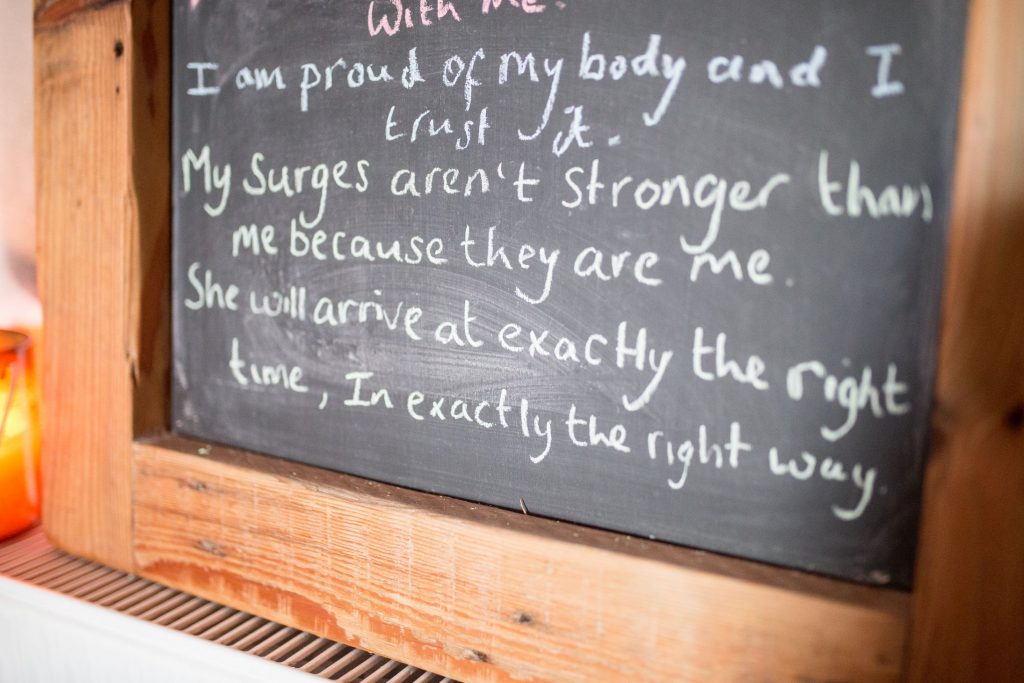 with me.
I am proud of my body and I
trust it.
My Surges aren't stronger than
me because they are me.
She will arrive at exactly the right
time, In exactly the right way.